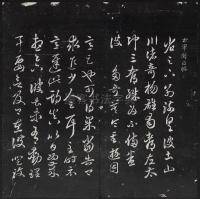 省足下別疏具彼土山
川諸奇楊雄蜀都左太
沖三都殊為不備悉
彼故多奇益令其遊目
意足也可得果當告卿
求迎少人足耳至時示
意遲此期真以日為歲
想足下鎮彼土未有動理
耳要欲及卿在彼登汶